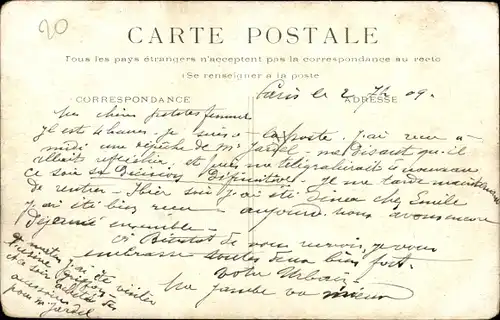 20
CARTE POSTALE
Tous les pays étrangers n'acceptent pas la correspondance au recto
(Se renseigner à la poste
CORRESPONDANCE
ADRESSE
Paris le 2 09.
Ma chère petite femme
Il est 4 heures. je suis à la poste. J'ai reçu à
midi une dépêche de Mr Jardel - me disant qu'il
allait réfléchir et puis me télégraferait à nouveau
ce soir sa Décision Définitive. Il me tarde maintenant
de rentrer - Hier soir j'ai été Diner chez Emile
j'ai été bien reçu - aujourd. nous avons encore
Déjeuné ensemble -
 de vous revoir, je vous
embrasse toutes deux bien fort.
Votre Urbain
Ma jambe va mieux
Ce matin j'ai été visiter
l'usine
et ce soir celle des
aussi
pour M. Jardel